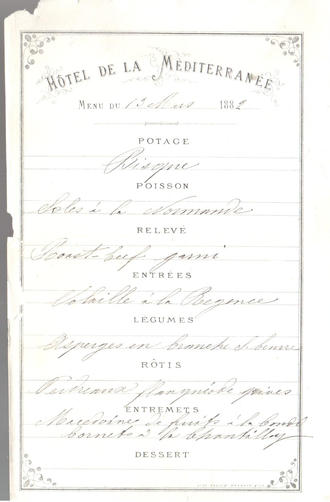 HÔTEL DE LA MÉDITERRANÉE
MENU DU 13 Mars 1882
POTAGE
Bisque
POISSON
Soles à la Normande
RELEVÉ
Roast-beef garni
ENTRÉES
Volaille à la Regence
LÉGUMES
Asperges en branche S. beurre
RÔTIS
Perdreaux flanqués de grives
ENTREMETS
Macédoine de fruits à la
Cornets à la Chantilly
DESSERT